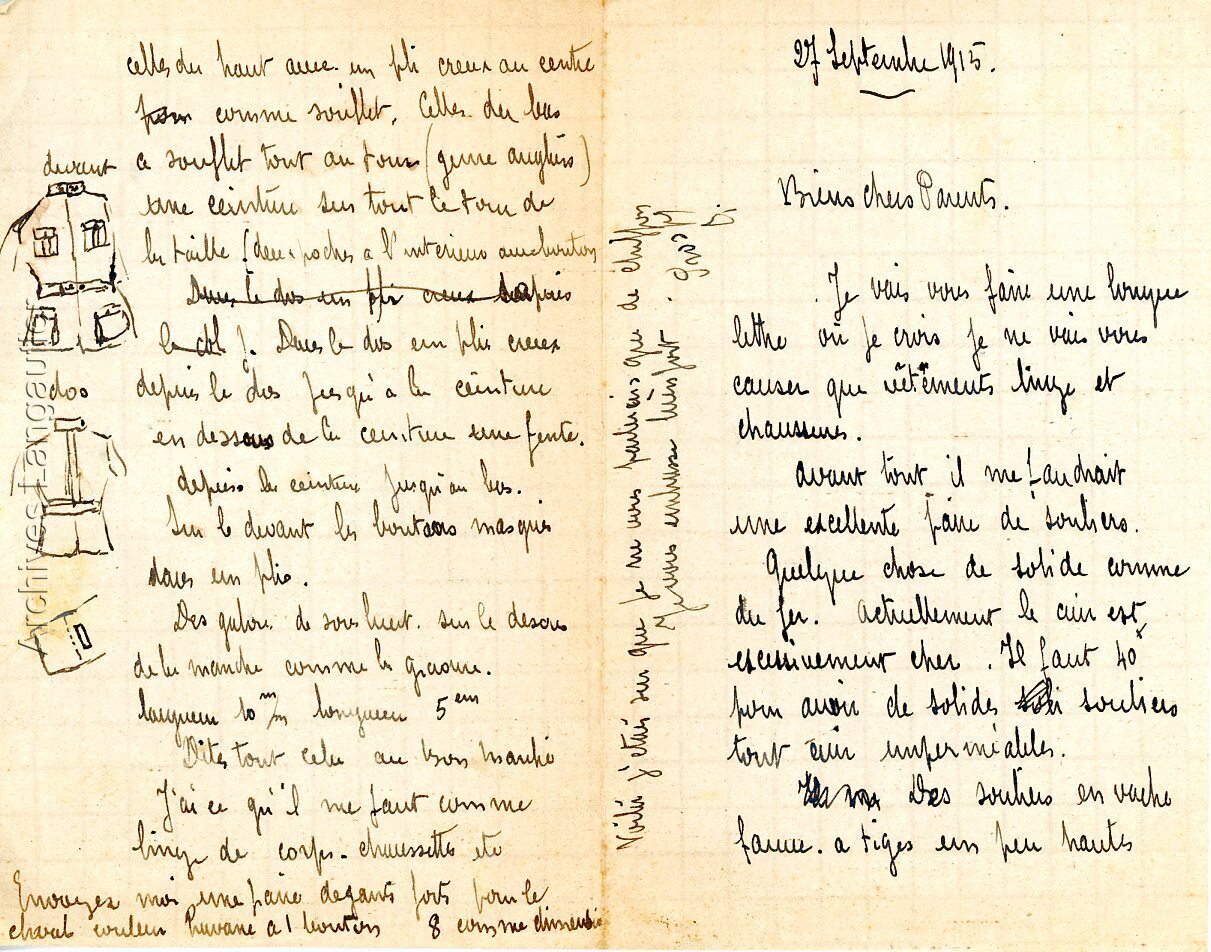 27 Septembre 1915.
Biens chers Parents.
Je vais vous faire une longue
lettre où je crois je ne vais vous
causer que vêtements linge et
chaussures.
Avant tout il me faudrait
une excellente paire de souliers.
Quelque chose de solide comme
du fer. Actuellement le cuir est
excessivement cher. Il faut 40
pour avoir de solides souliers
tout cuir imperméables.
Des souliers en vache
fauve. a tiges un peu hautes
celles du haut avec un pli creux au centre
comme soufflet. Celles du bas
a soufflet tout au tour (genre anglais)
une ceinture sur tout le tour de
la taille (deux poches a l'interieur avec boutons
Dans le dos un pli creux depuis
le col). Dans le dos un plis creux
depuis le dos jusqu'a la ceinture
en dessous de la ceinture une fente.
depuis la ceinture jusqu'au bas.
Sur le devant les boutons masqués
dans un plis.
Des galons de sous lieut. sur le dessus
de la manche comme la gravure.
largueur 10 m/m longueur 5 cm
Dites tout cela au Bon Marché
J'ai ce qu'il me faut comme
linge de corps. chaussettes etc
Envoyez moi une paire de gants forts pour le
cheval couleur havane a 1 bouton 8 comme dimension
devant
dos
Voilà j'étais sur que je ne vous parlerais que de chiffons
Je vous embrasse bien fort.
Archives Langautier